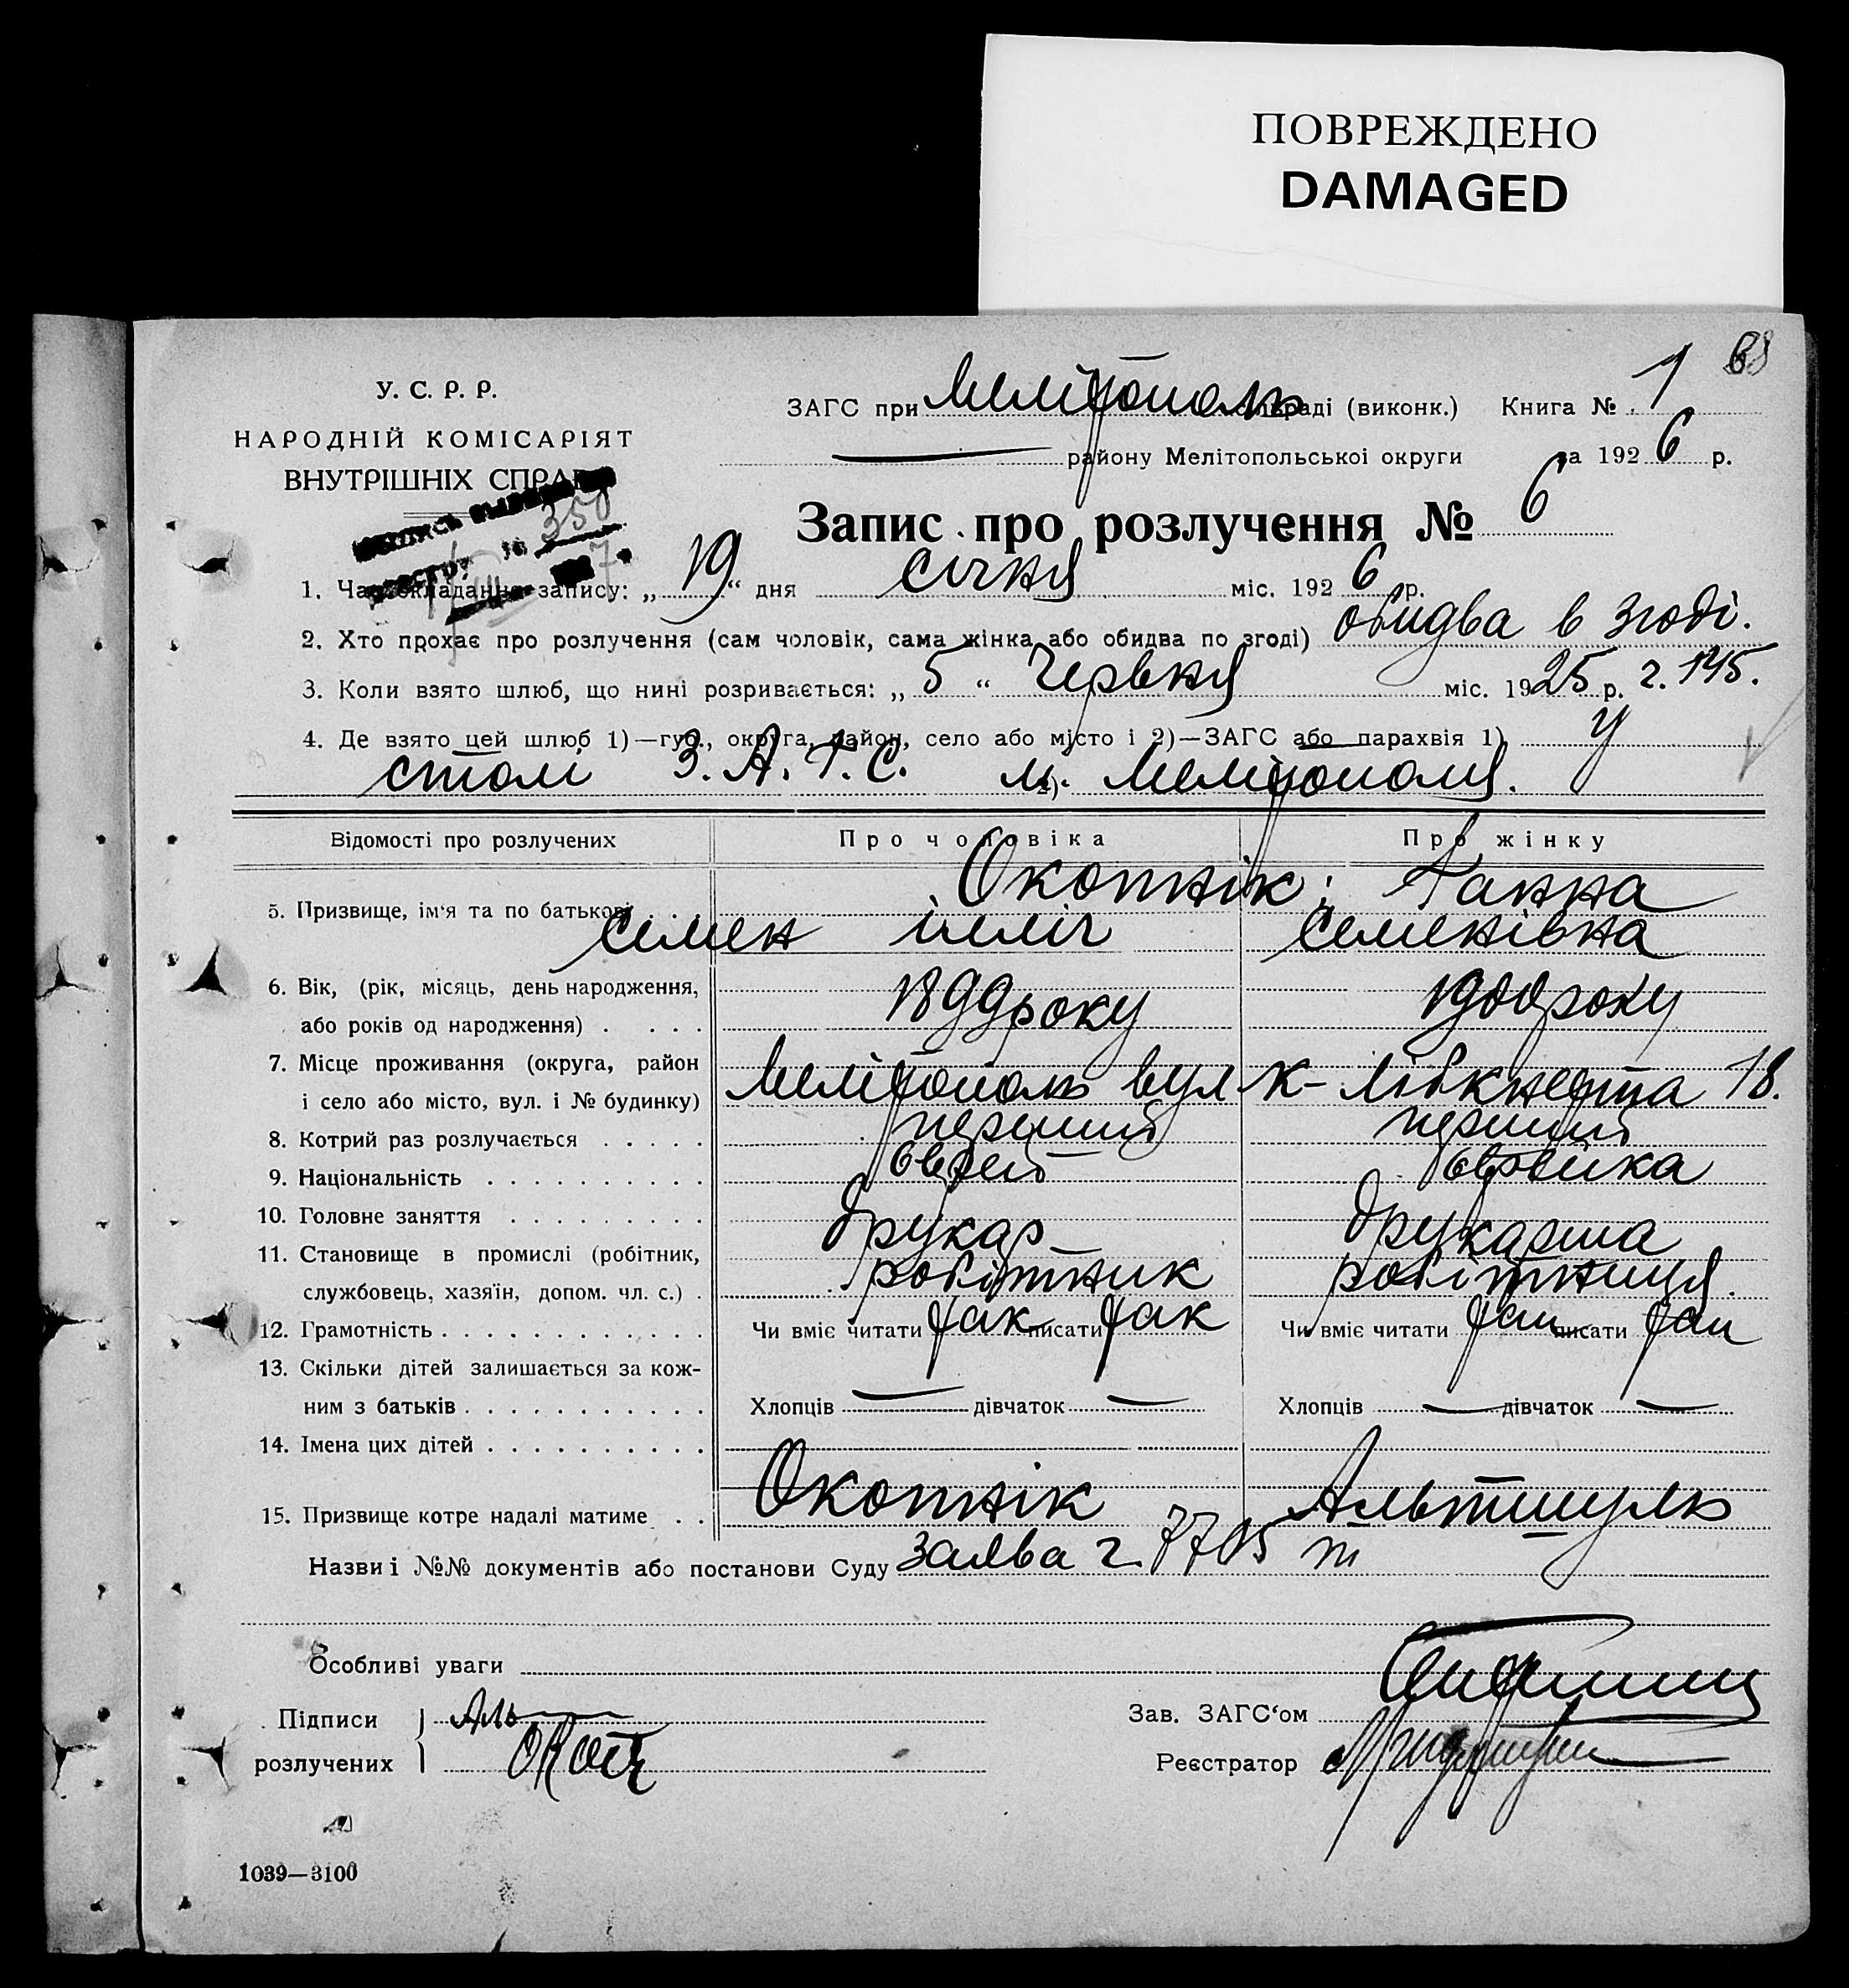 ПОВРЕЖДЕНО
DAMAGED
68
У. С. Р. Р.
НАРОДНІЙ КОМІСАРІЯТ
ВНУТРІШНІХ СПРАВ
ЗАГС при Мелітополь раді (виконк.) Книга № 1
— району Мелітопольскоі округи за 1926 р.
Запис про розлучення № 6
350
1. Час складання запису: „19“ дня січня міс. 1926 р.
2. Хто прохає про розлучення (сам чоловік, сама жінка або обидва по згоді) обидва в згоді.
3. Коли взято шлюб, що нині розривається: „5“ Червня міс. 1925 р. г. 145.
4. Де взято цей шлюб 1)—губ., округа, район, село або місто і 2)—ЗАГС або парахвія 1) у
столі З. А. Г. С. 2) м. Мелітополя.
Відомості про розлучених Про чоловіка Про жінку
5. Призвище, ім‘я та по батькові Окотнік; Ганна
Семен ілліч Семенівна
6. Вік, (рік, місяць, день народження, 1899 року 1900 року
або років од народження)
7. Місце проживання (округа, район
і село або місто, вул. і № будинку) Мелітополь вул К-Лібкнехта 18.
8. Котрий раз розлучається перший перший
9. Національність Єврей Єврейка
10. Головне заняття друкар друкарша
11. Становище в промислі (робітник,
службовець, хазяїн, допом. чл. с.) робітник робітниця.
12. Грамотність Чи вміє читати так писати так Чи вміє читати так писати так
13. Скільки дітей залишається за кож-
ним з батьків Хлопців — дівчаток — Хлопців — дівчаток —
14. Імена цих дітей
15. Призвище котре надалі матиме Окотнік Альтшуль
Назви і №№ документів або постанови Суду Заява г. 7705 т
Особливі уваги
Підписи Аль
розлучених Окот
Зав. ЗАГС‘ом
Реєстратор
1039—3100